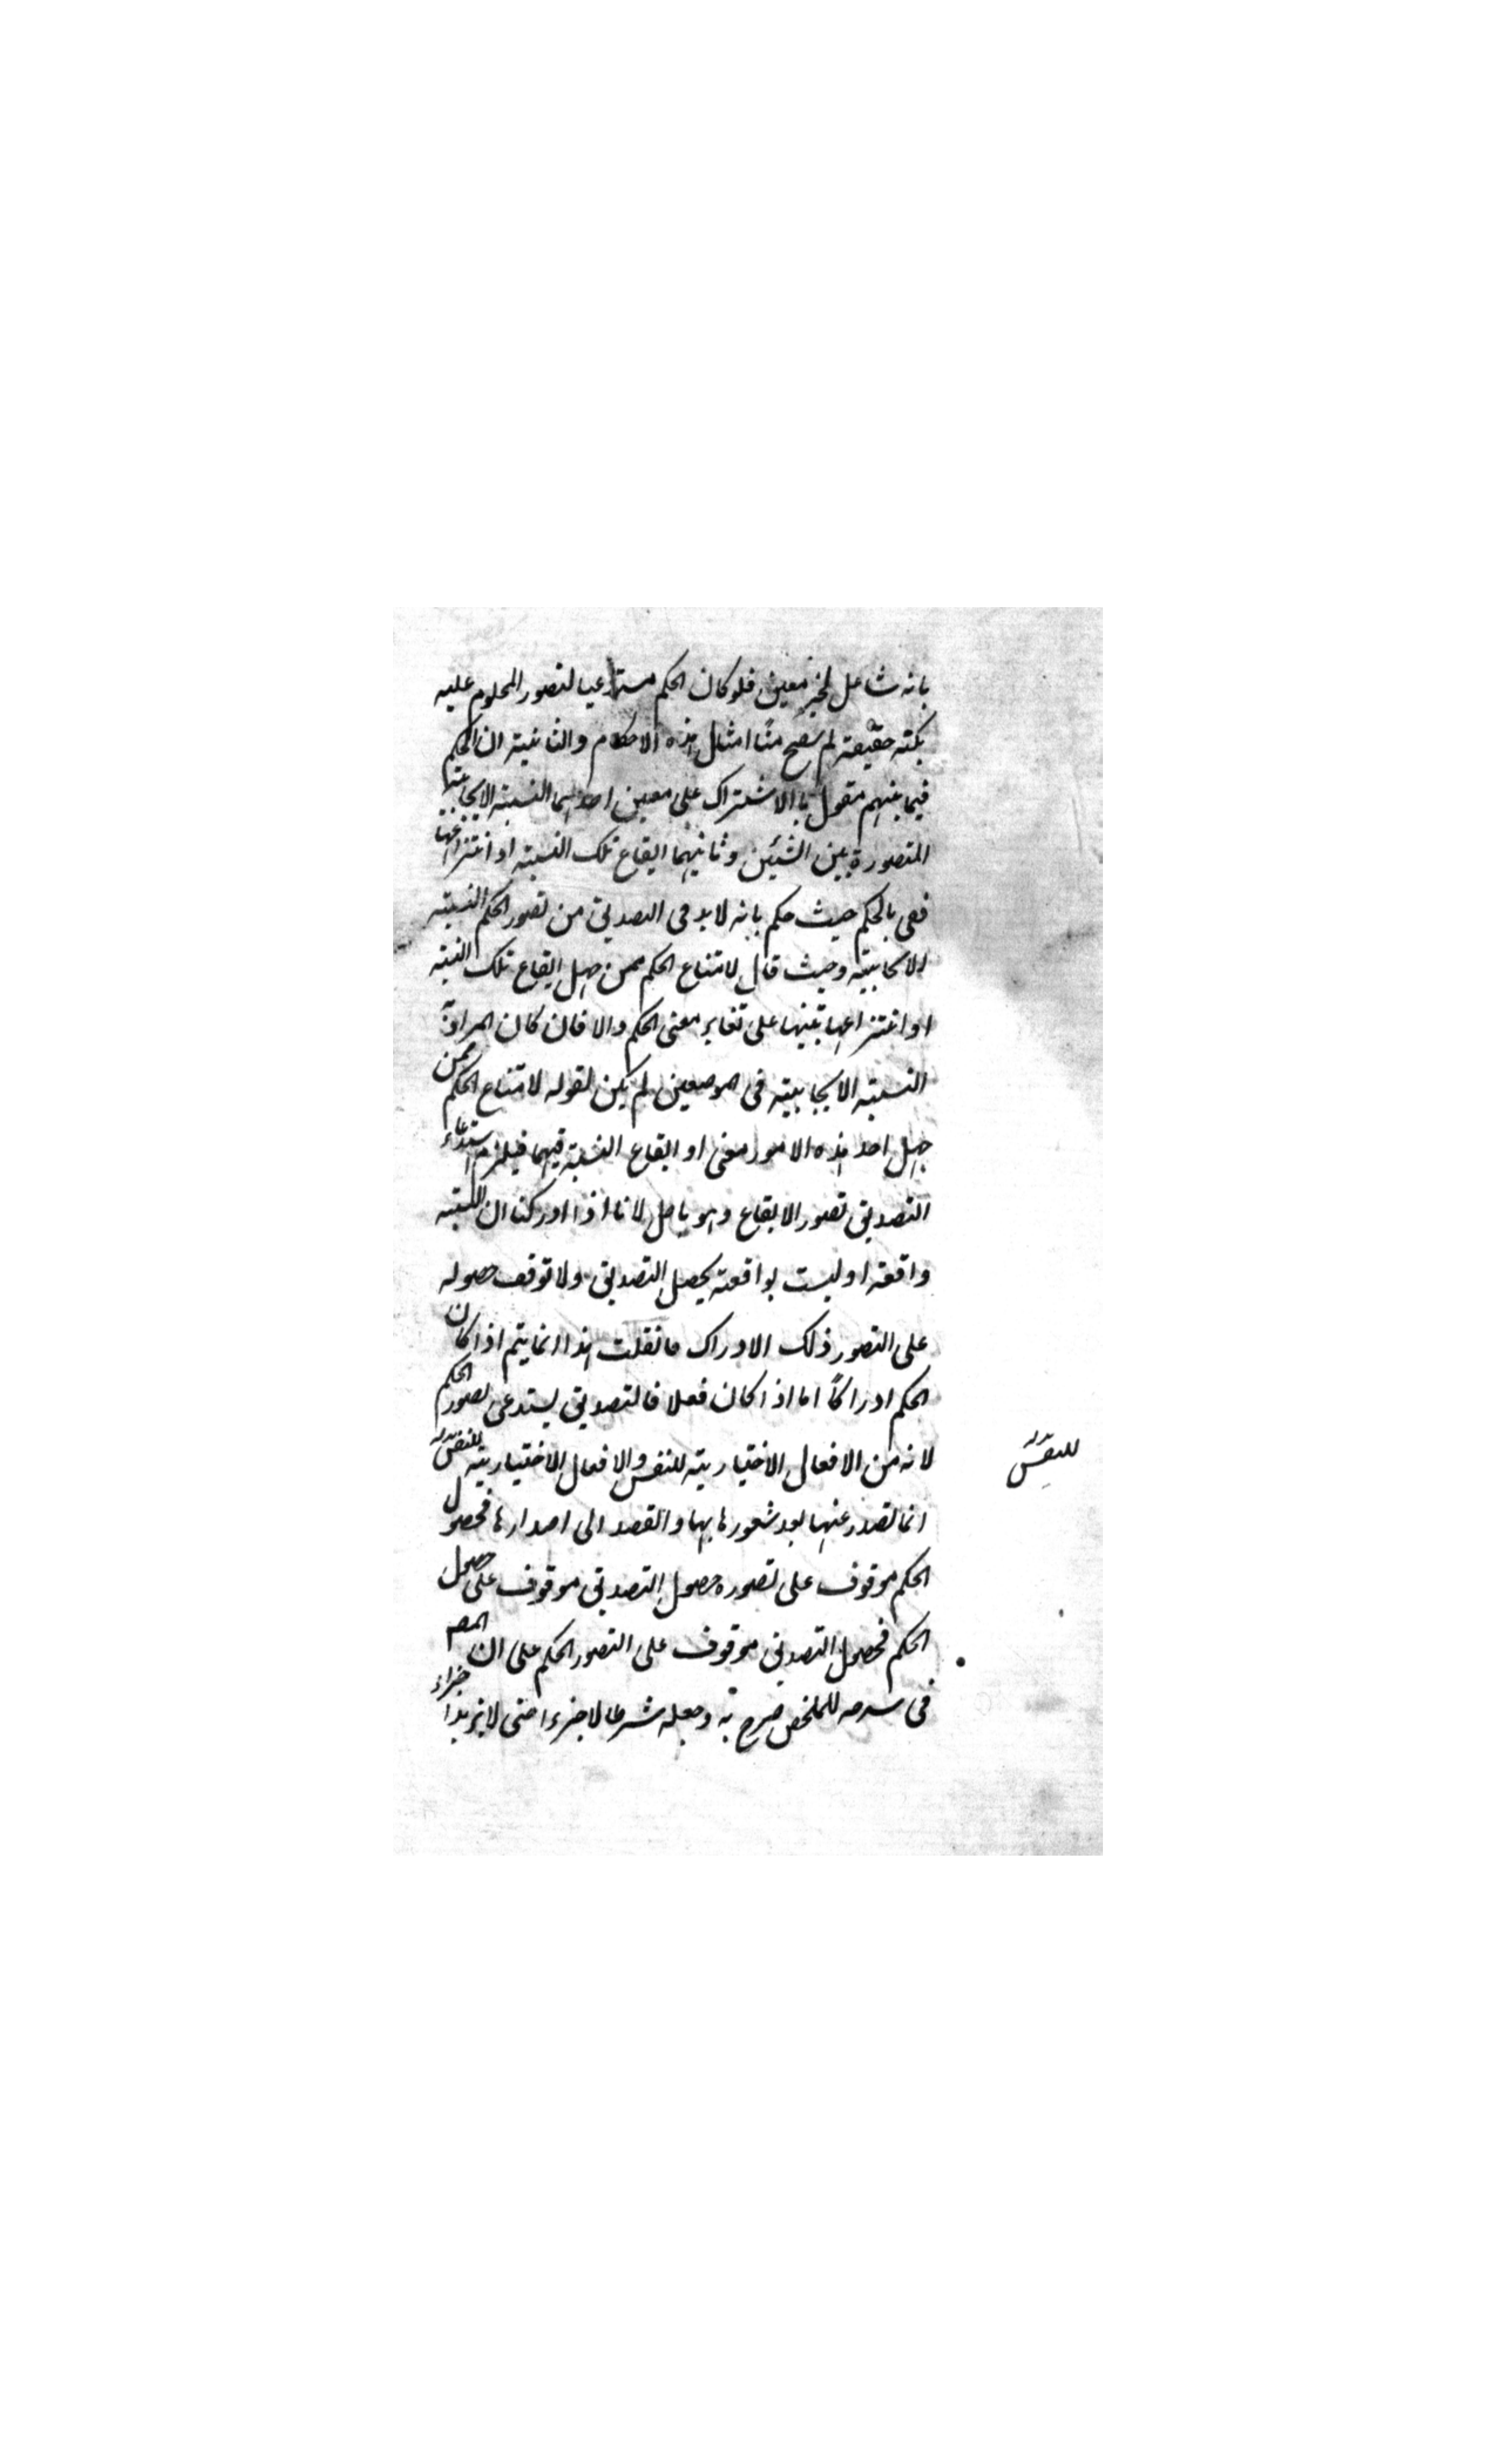 بانه شاغل لحيز معين فلو كان الحكم مستدعيا لتصور المحلوم عليه
بكنه حقيقته لم يصح منا امثال هذه الاحكام والثانية ان الحكم
فيما بينهم مقول بالاشتراك على معنيين احدهما النسبة الايجابية
المتصورة بين الشيئين وثانيهما ايقاع تلك النسبة او انتزاعها
فعنى بالحكم حيث حكم بانه لا بد فى التصديق من تصور الحكم النسبة
الايجابية وحيث قال لامتناع الحكم ممن جهل ايقاع تلك النسبة
او انتزاعها تنبيها على تغاير معنى الحكم والا فان كان المراد به
النسبة الايجابية فى الموضعين لم يكن لقوله لامتناع الحكم ممن
جهل احد هذه الامور معنى او ايقاع النسبة فيهما فيلزم استدعاء
التصديق تصور الايقاع وهو باطل لانا اذا ادركنا ان النسبة
واقعة او ليست بواقعة يحصل التصديق ولا توقف حصوله
على التصور ذلك الادراك فانقلت هذا انما يتم اذا كان
الحكم ادراكا اما اذا كان فعلا فالتصديق يستدعى تصور الحكم
لانه من الافعال الاختيارية للنفس والافعال الاختيارية للنفس
انما تصدر عنها بعد شعورها بها والقصد الى اصدارها فحصول
الحكم موقوف على تصوره حصول التصديق موقوف على حصول
الحكم فحصول التصديق موقوف على التصور الحكم على ان المص
فى شرحه للملخص صرح به وجعله شرطا لا جزءا حتى لا يزيد اجزاء
للنفس